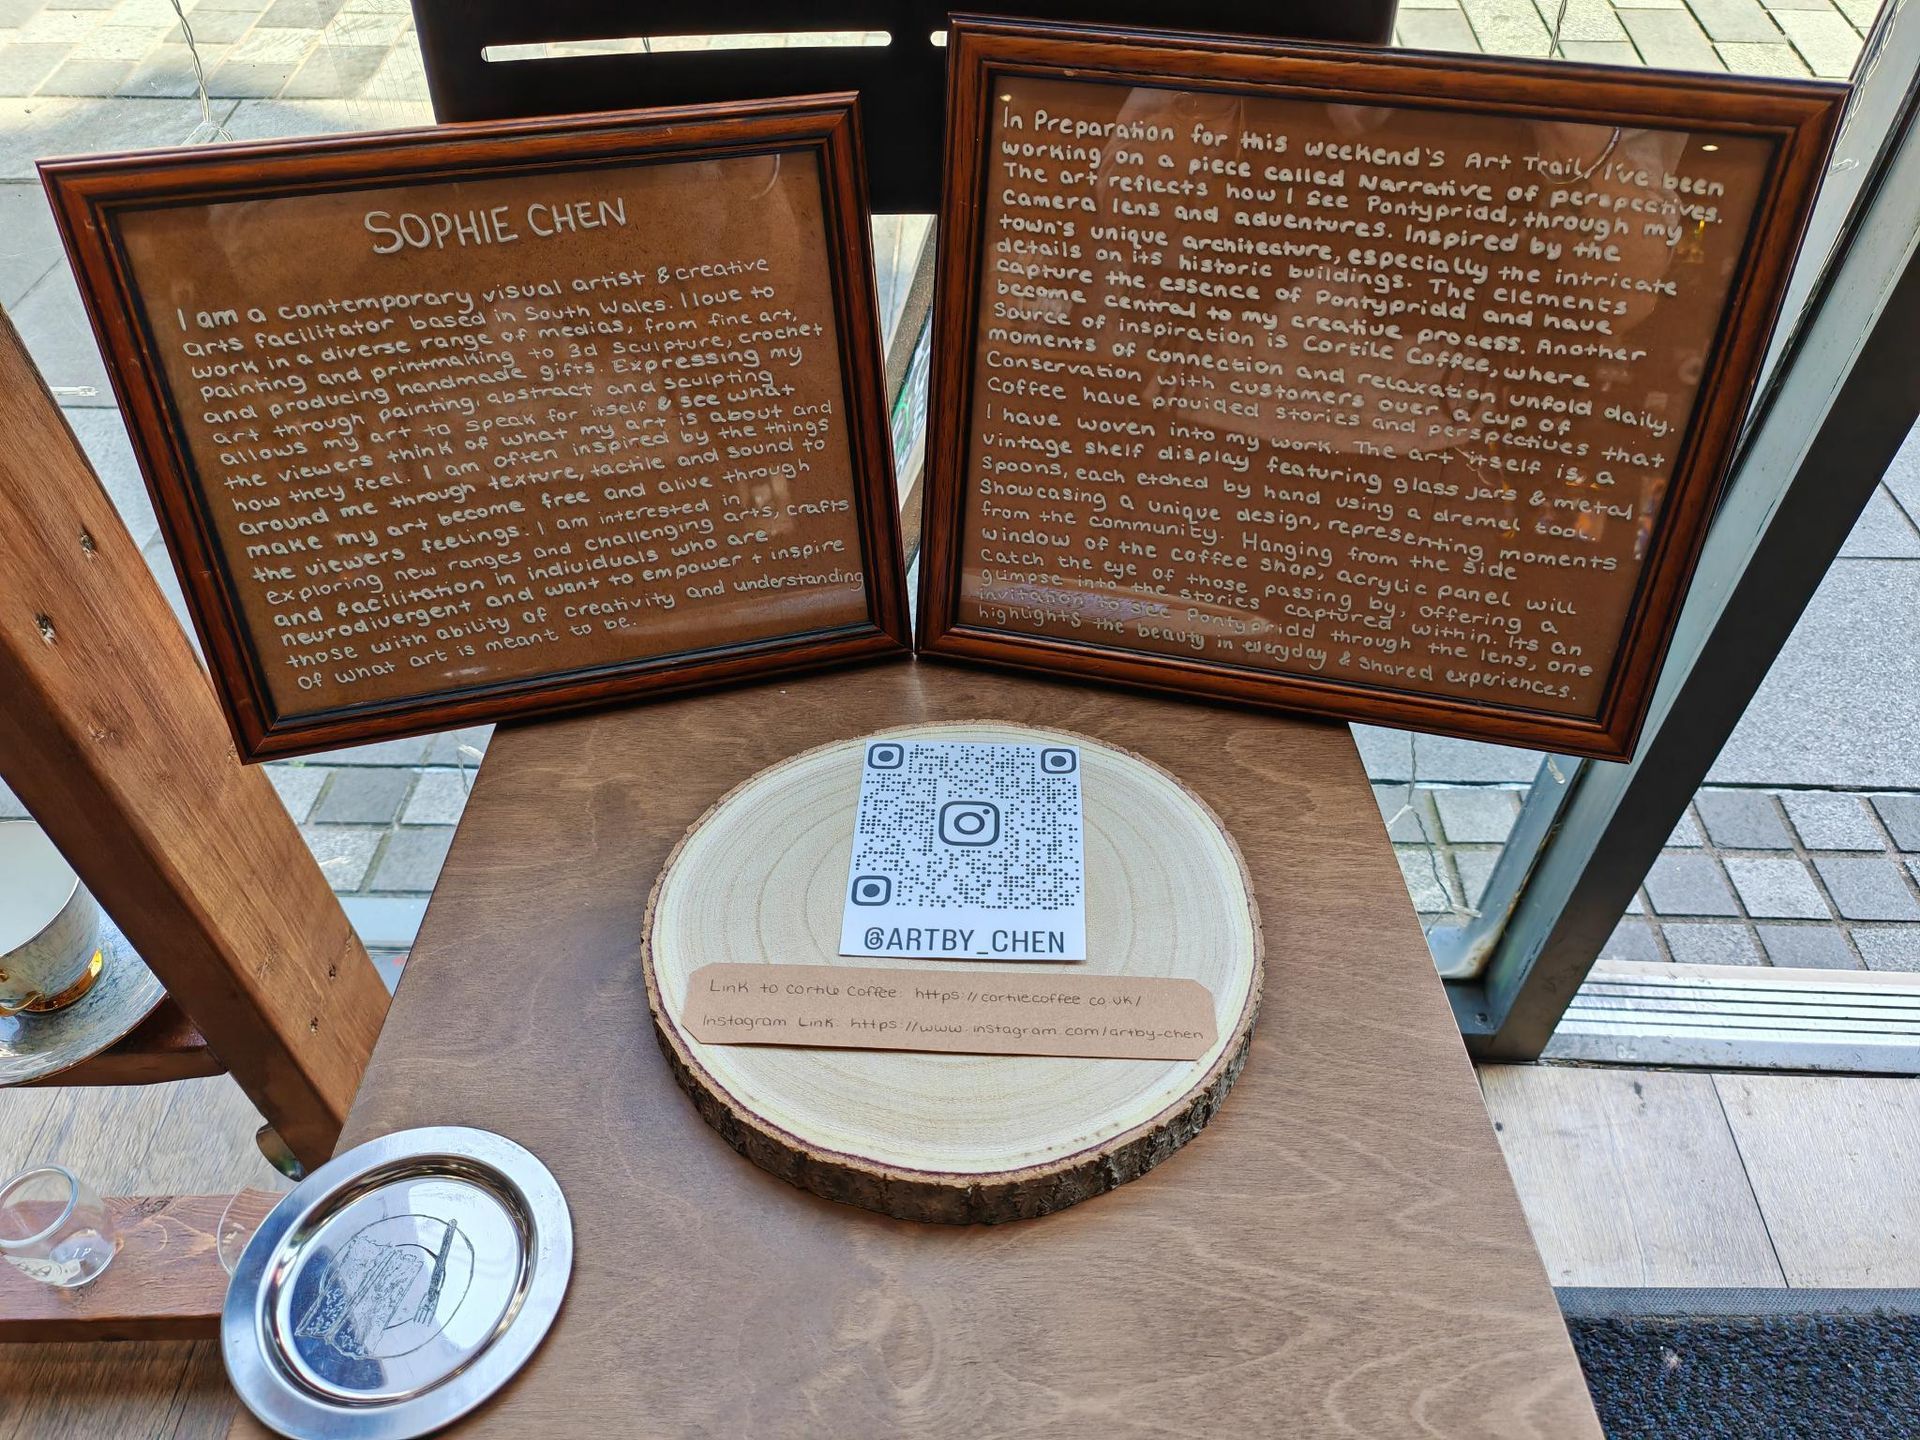 SOPHIE CHEN
I am a contemporary visual artist & creative
arts facilitator based in South Wales. I love to
work in a diverse range of medias, from fine art,
painting and printmaking to 3d sculpture, crochet
and producing handmade gifts. Expressing my
art through painting, abstract and sculpting
allows my art to speak for itself & see what
the viewers think of what my art is about and
how they feel. I am often inspired by the things
around me through texture, tactile and sound to
make my art become free and alive through
the viewers feelings. I am interested in
exploring new ranges and challenging arts, crafts
and facilitation in individuals who are
neurodivergent and want to empower + inspire
those with ability of creativity and understanding
of what art is meant to be.
In Preparation for this weekend's Art Trail, I've been
working on a piece called Narrative of perspectives.
The art reflects how I see Pontypridd, through my
camera lens and adventures. Inspired by the
town's unique architecture, especially the intricate
details on its historic buildings. The elements
capture the essence of Pontypridd and have
become central to my creative process. Another
source of inspiration is Cortile Coffee, where
moments of connection and relaxation unfold daily.
Conservation with customers over a cup of
coffee have provided stories and perspectives that
I have woven into my work. The art itself is a
vintage shelf display featuring glass jars & metal
spoons, each etched by hand using a dremel tool.
Showcasing a unique design, representing moments
from the community. Hanging from the side
window of the coffee shop, acrylic panel will
catch the eye of those passing by, offering a
glimpse into the stories captured within. Its an
invitation to see Pontypridd through the lens, one
highlights the beauty in everyday & shared experiences.
@ARTBY_CHEN
Link to cortile coffee: https://cortilecoffee.co.uk/
Instagram Link: https://www.instagram.com/artby-chen